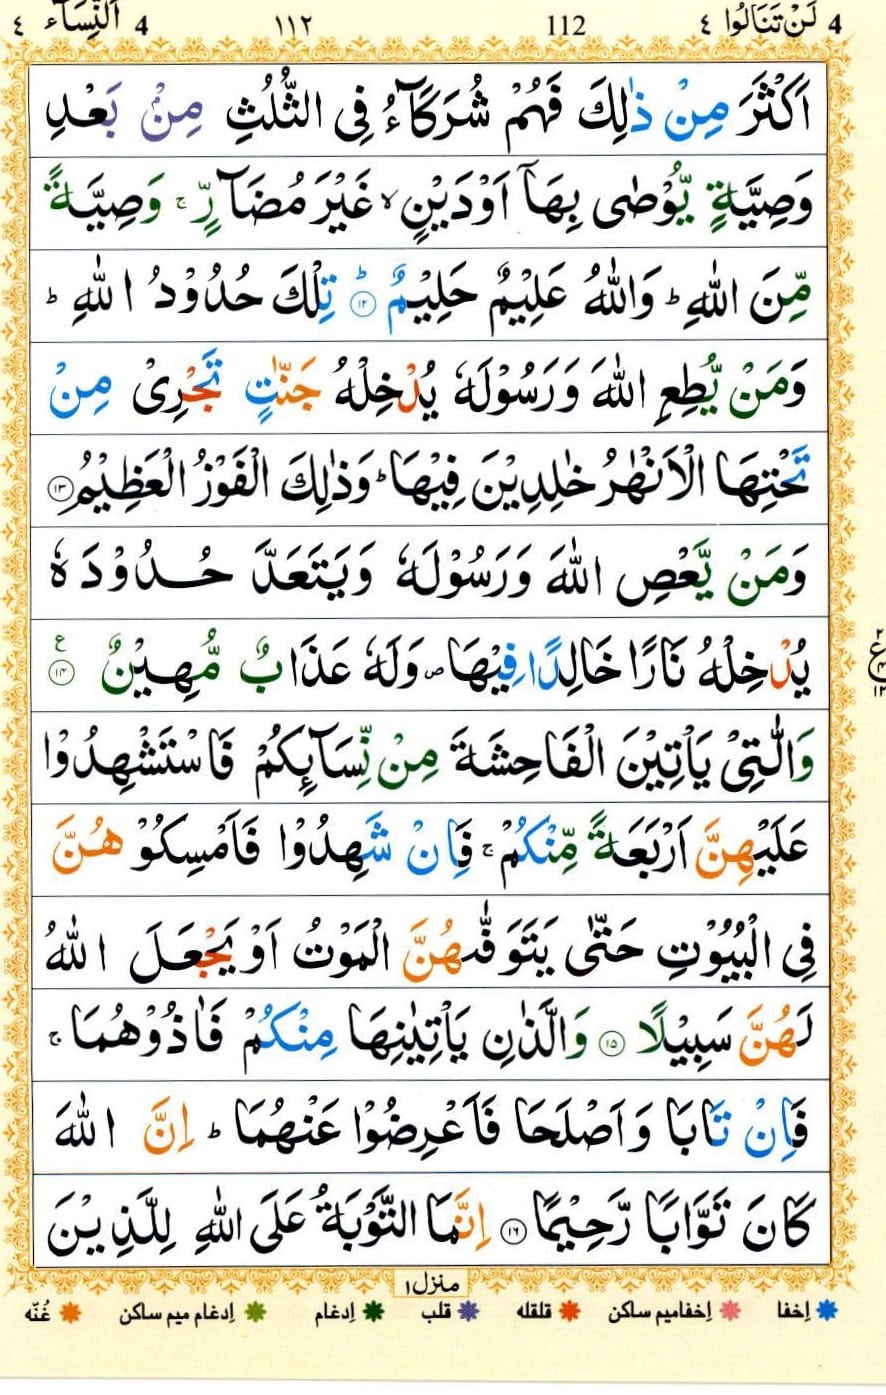 4 لَنْ تَنَالُوا ٤ 112 ١١٢ 4 اَلنِّسَآء ٤
اَكْثَرَ مِنْ ذٰلِكَ فَهُمْ شُرَكَآءُ فِى الثُّلُثِ مِنْۢ بَعْدِ
وَصِيَّةٍ يُّوْصٰى بِهَآ اَوْدَيْنٍ ۙ غَيْرَ مُضَآرٍّ ۚ وَصِيَّةً
مِّنَ اللّٰهِ ؕ وَاللّٰهُ عَلِيْمٌ حَلِيْمٌ ؕ ﴿۱۲﴾ تِلْكَ حُدُوْدُ اللّٰهِ ؕ
وَمَنْ يُّطِعِ اللّٰهَ وَرَسُوْلَهٗ يُدْخِلْهُ جَنّٰتٍ تَجْرِىْ مِنْ
تَحْتِهَا الْاَنْهٰرُ خٰلِدِيْنَ فِيْهَا ؕ وَذٰلِكَ الْفَوْزُ الْعَظِيْمُ ﴿۱۳﴾
وَمَنْ يَّعْصِ اللّٰهَ وَرَسُوْلَهٗ وَيَتَعَدَّ حُدُوْدَهٗ
يُدْخِلْهُ نَارًا خَالِدًا فِيْهَا ۖ وَلَهٗ عَذَابٌ مُّهِيْنٌ ﴿۱۴﴾ ع
وَالّٰتِىْ يَاْتِيْنَ الْفَاحِشَةَ مِنْ نِّسَآئِكُمْ فَاسْتَشْهِدُوْا
عَلَيْهِنَّ اَرْبَعَةً مِّنْكُمْ ۚ فَاِنْ شَهِدُوْا فَاَمْسِكُوْهُنَّ
فِى الْبُيُوْتِ حَتّٰى يَتَوَفّٰٮهُنَّ الْمَوْتُ اَوْ يَجْعَلَ اللّٰهُ
لَهُنَّ سَبِيْلًا ﴿۱۵﴾ وَالَّذٰنِ يَاْتِيٰنِهَا مِنْكُمْ فَاٰذُوْهُمَا ۚ
فَاِنْ تَابَا وَاَصْلَحَا فَاَعْرِضُوْا عَنْهُمَا ؕ اِنَّ اللّٰهَ
كَانَ تَوَّابًا رَّحِيْمًا ﴿۱۶﴾ اِنَّمَا التَّوْبَةُ عَلَى اللّٰهِ لِلَّذِيْنَ
منزل ۱
اِخفا اِخفامیم ساکن قلقله قلب اِدغام اِدغام میم ساکن غُنّه